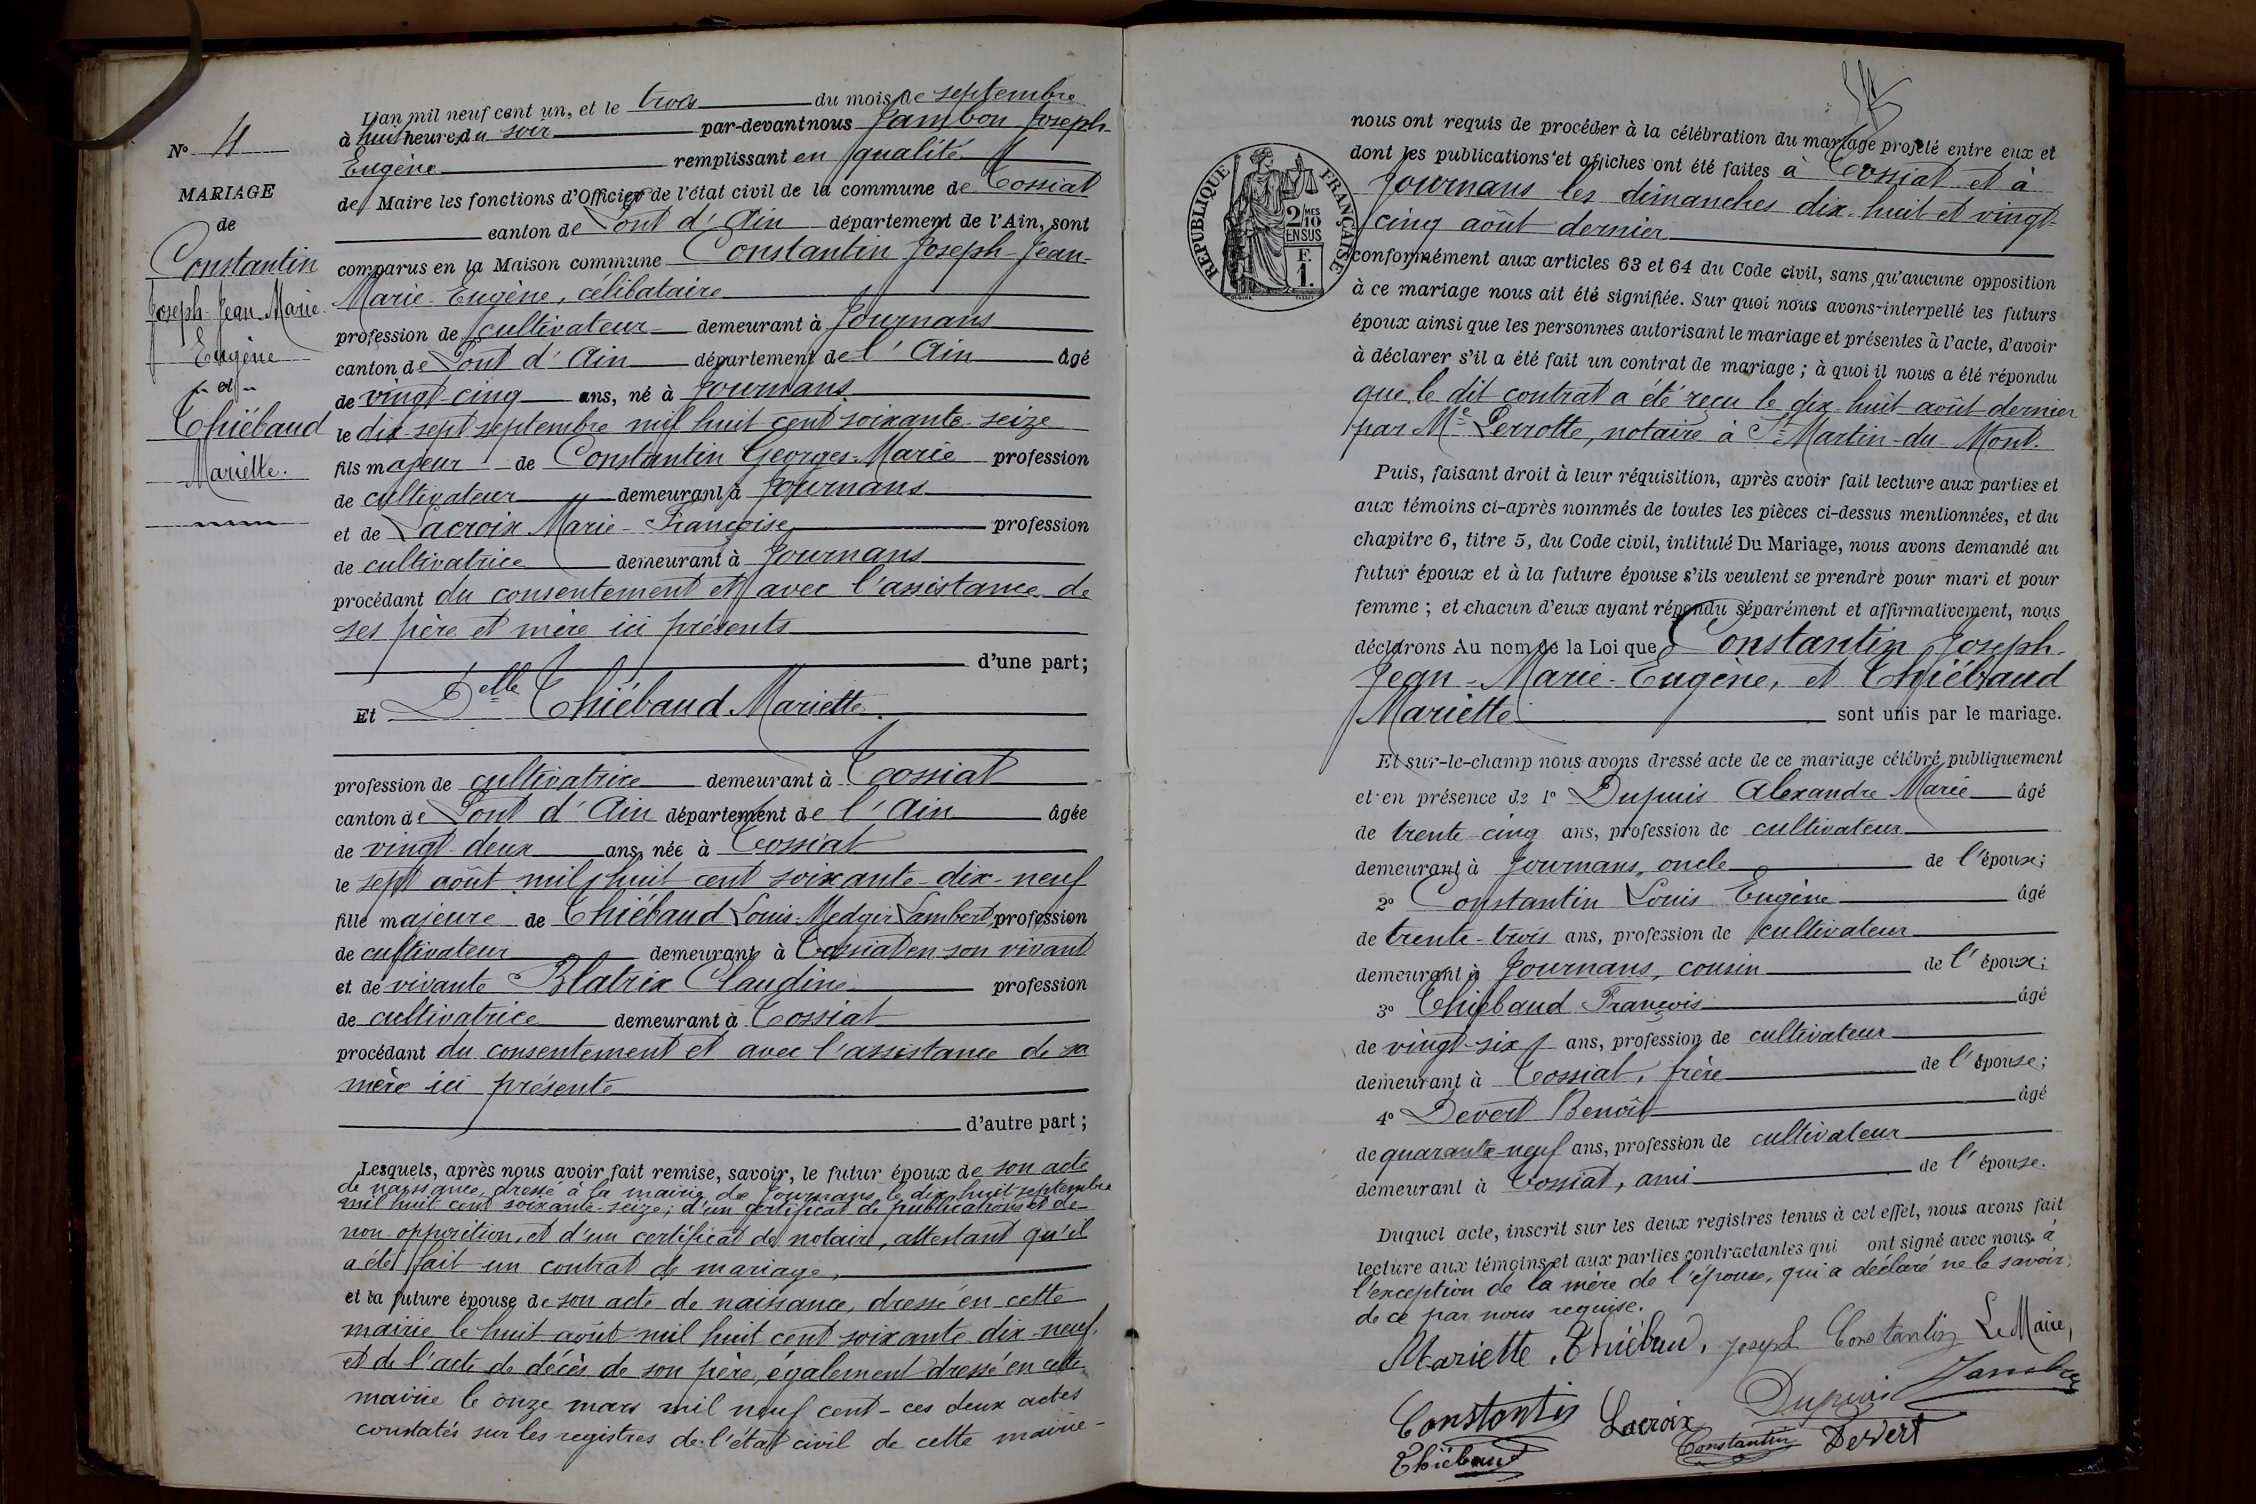 N° 4
MARIAGE
de
Constantin
Joseph-Jean-Marie-
Eugène
et
Thiébaud
Mariette.
L'an mil neuf cent un, et le trois du mois de septembre
à huit heures du soir par-devant nous Jambon Joseph-
Eugène remplissant en qualité
de Maire les fonctions d'Officier de l'état civil de la commune de Tossiat
canton de Pont d'Ain département de l'Ain, sont
comparus en la Maison commune Constantin Joseph-Jean-
Marie-Eugène, célibataire
profession de cultivateur demeurant à Journans
canton de Pont d'Ain département de l'Ain âgé
de vingt-cinq ans, né à Journans
le dix-sept septembre mil huit cent soixante-seize
fils majeur de Constantin Georges-Marie profession
de cultivateur demeurant à Journans
et de Lacroix Marie-Françoise profession
de cultivatrice demeurant à Journans
procédant du consentement et avec l'assistance de
ses père et mère ici présents
d'une part;
Et Delle Thiébaud Mariette
profession de cultivatrice demeurant à Tossiat
canton de Pont d'Ain département de l'Ain âgée
de vingt-deux ans, née à Tossiat
le sept août mil huit cent soixante-dix-neuf
fille majeure de Thiébaud Louis-Medgir Lambert, profession
de cultivateur demeurant à Tossiat en son vivant
et de vivante Blatrix Claudine profession
de cultivatrice demeurant à Tossiat
procédant du consentement et avec l'assistance de sa
mère ici présente
d'autre part;
Lesquels, après nous avoir fait remise, savoir, le futur époux de son acte
de naissance, dressé à la mairie de Journans le dix huit septembre
mil huit cent soixante-seize; d'un certificat de publications et de
non-opposition, et d'un certificat de notaire, attestant qu'il
a été fait un contrat de mariage,
et la future épouse de son acte de naissance, dressé en cette
mairie le huit août mil huit cent soixante-dix-neuf,
et de l'acte de décès de son père, également dressé en cette
mairie le onze mars mil neuf cent - ces deux actes
constatés sur les registres de l'état civil de cette mairie -
RÉPUBLIQUE FRANÇAISE
2/10 MES
EN SUS
F.
1.
nous ont requis de procéder à la célébration du mariage projeté entre eux et
dont les publications et affiches ont été faites à Tossiat et à
Journans les dimanches dix-huit et vingt-
cinq août dernier
conformément aux articles 63 et 64 du Code civil, sans qu'aucune opposition
à ce mariage nous ait été signifiée. Sur quoi nous avons interpellé les futurs
époux ainsi que les personnes autorisant le mariage et présentes à l'acte, d'avoir
à déclarer s'il a été fait un contrat de mariage; à quoi il nous a été répondu
que le dit contrat a été reçu le dix-huit août dernier
par Me Perrotte, notaire à St Martin-du-Mont.
Puis, faisant droit à leur réquisition, après avoir fait lecture aux parties et
aux témoins ci-après nommés de toutes les pièces ci-dessus mentionnées, et du
chapitre 6, titre 5, du Code civil, intitulé Du Mariage, nous avons demandé au
futur époux et à la future épouse s'ils veulent se prendre pour mari et pour
femme; et chacun d'eux ayant répondu séparément et affirmativement, nous
déclarons Au nom de la Loi que Constantin Joseph-
Jean-Marie-Eugène, et Thiébaud
Mariette sont unis par le mariage.
Et sur-le-champ nous avons dressé acte de ce mariage célébré publiquement
et en présence de 1° Dupuis Alexandre Marie âgé
de trente-cinq ans, profession de cultivateur
demeurant à Journans, oncle de l'époux;
2° Constantin Louis Eugène âgé
de trente-trois ans, profession de cultivateur
demeurant à Journans, cousin de l'époux;
3° Thiébaud François âgé
de vingt-six ans, profession de cultivateur
demeurant à Tossiat, frère de l'épouse;
4° Devert Benoît âgé
de quarante-neuf ans, profession de cultivateur
demeurant à Tossiat, ami de l'épouse.
Duquel acte, inscrit sur les deux registres tenus à cet effet, nous avons fait
lecture aux témoins et aux parties contractantes qui ont signé avec nous à
l'exception de la mère de l'épouse, qui a déclaré ne le savoir,
de ce par nous requise.
Mariette Thiébau. Joseph Constantin Le Maire,
Constantin Lacroix Dupuis Jambon
Thiébaud Constantin Devert